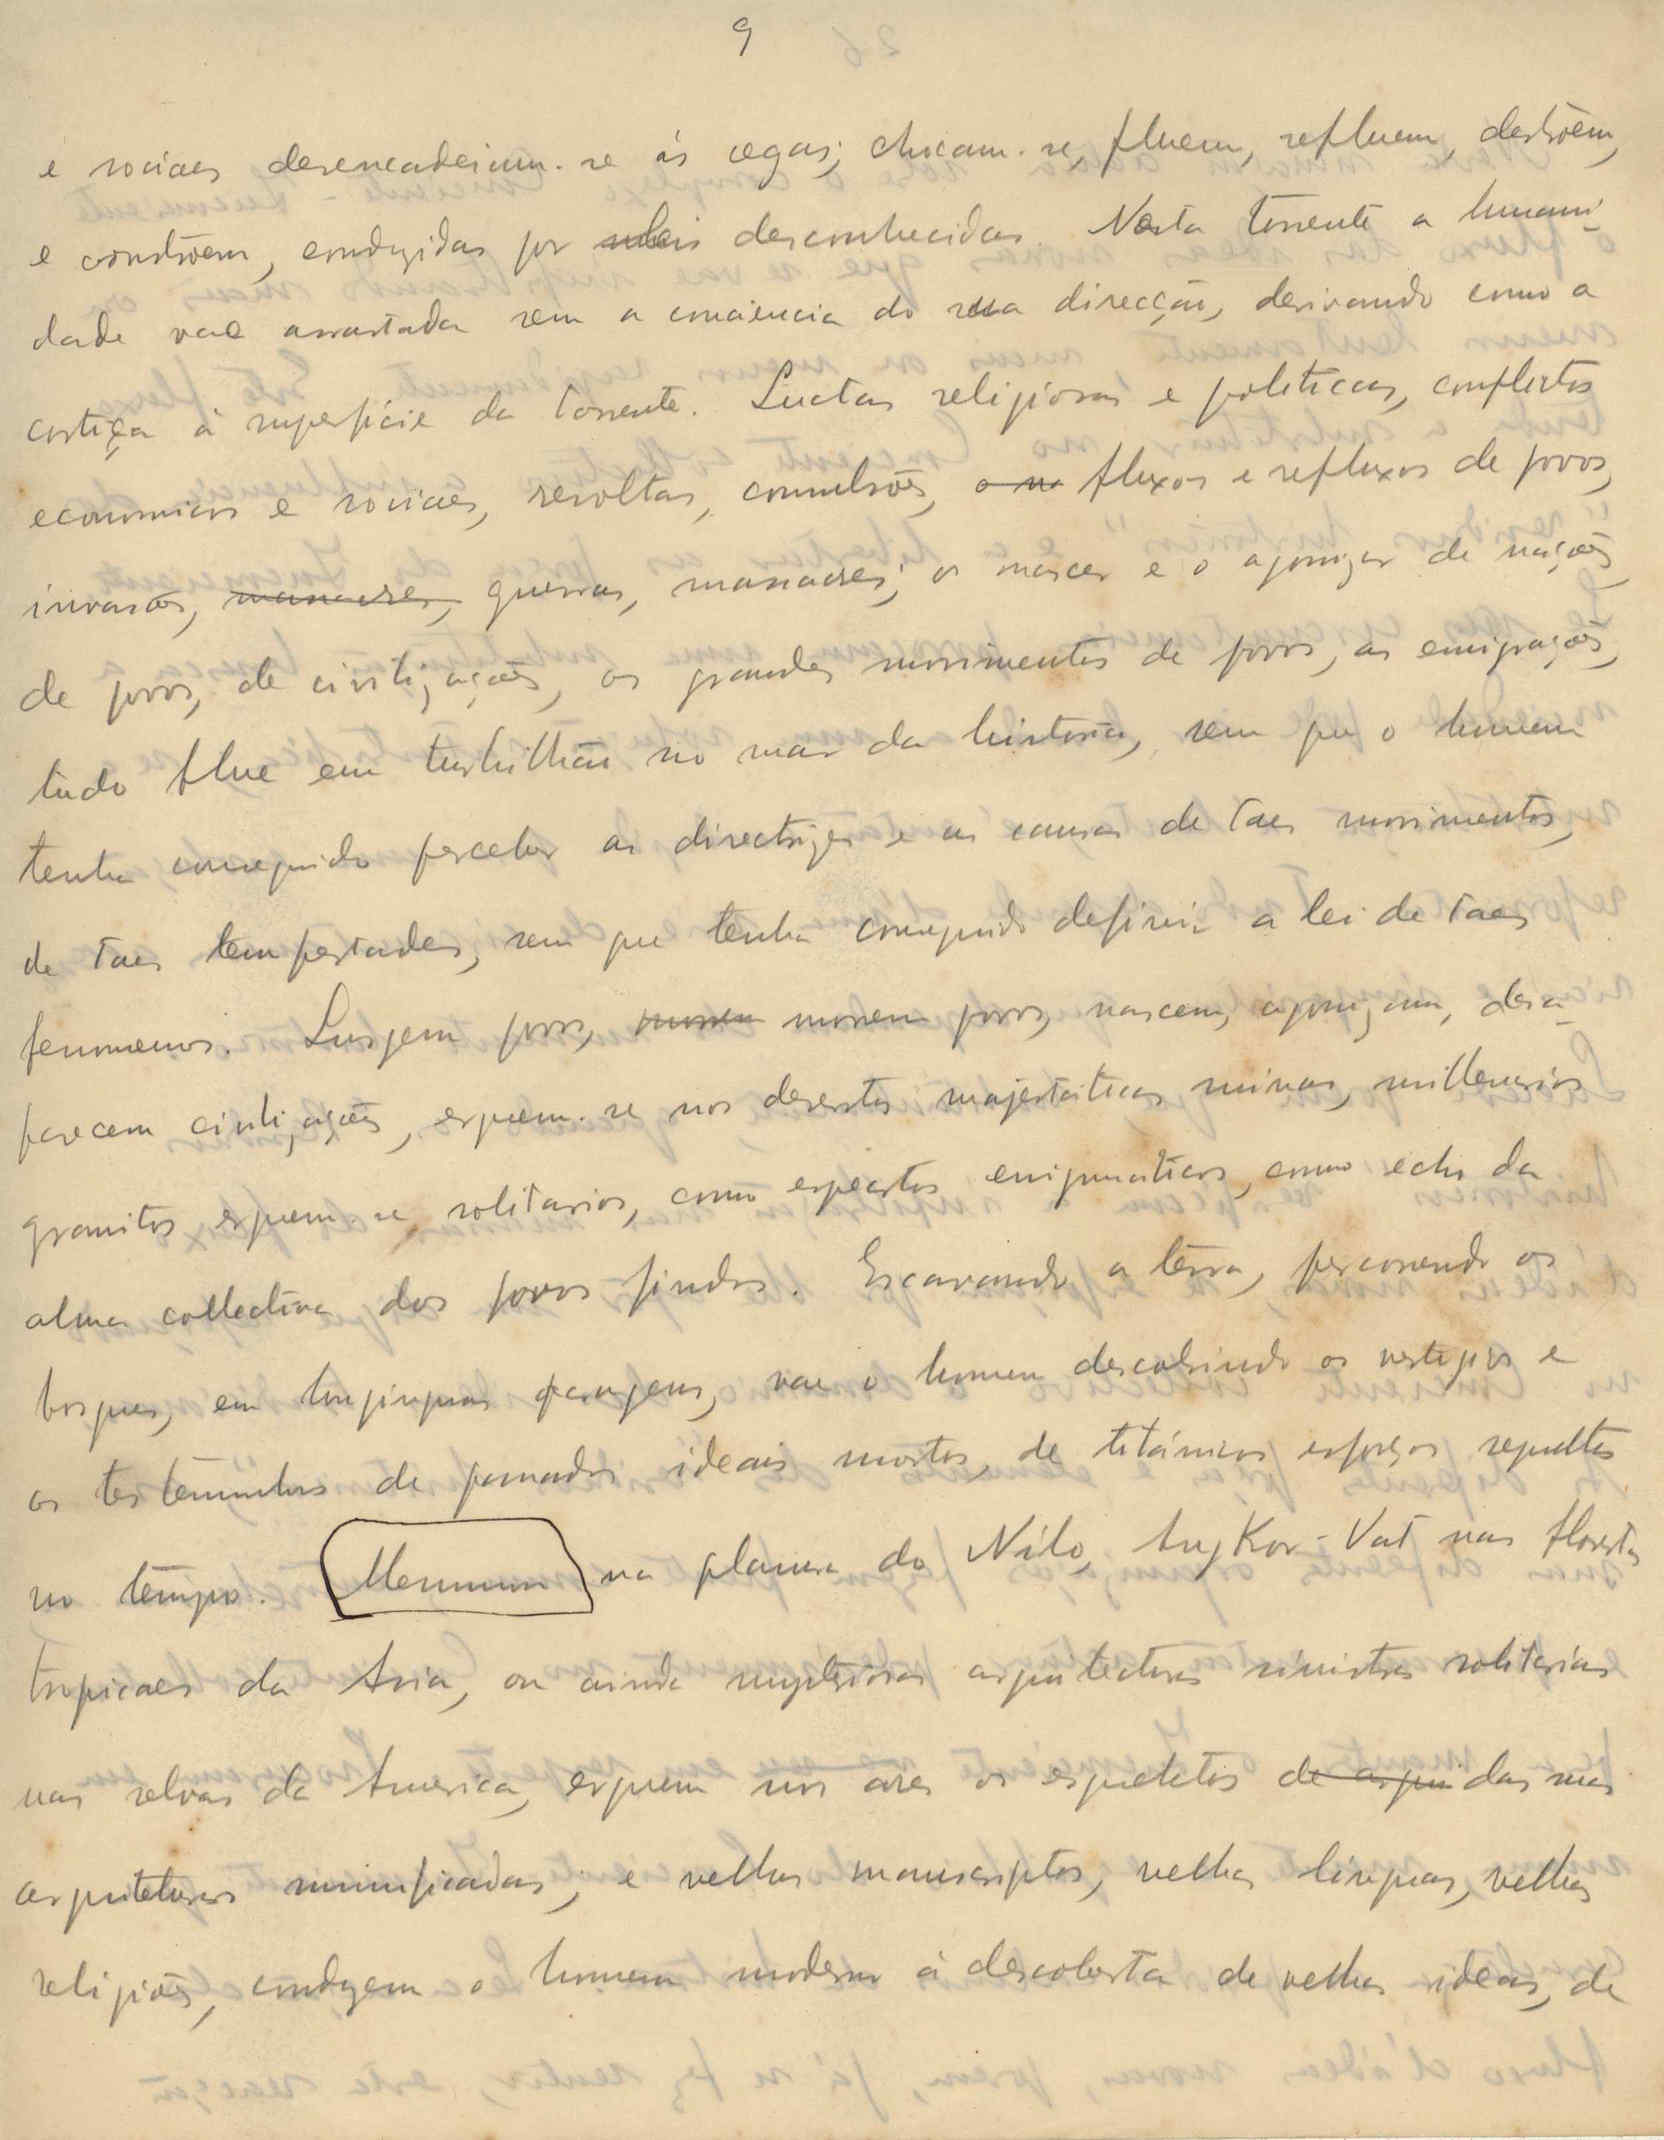 9
e sociaes desencadeiam-se ás cegas; chocam-se, fluem, refluem, destróem,
e constróem, conduzidas por leis desconhecidas. Nesta torrente a humani-
dade vae arrastada sem a consciencia da sua direcção, derivando como a
cortiça à superficie da torrente. Luctas religiosas e politicas, conflictos
economicos e sociaes, revoltas, convulsões, fluxos e refluxos de povos,
invasões, massacres, guerras, massacres; o nascer e o agonizar de nações,
de povos, de civilizações, os grandes movimentos de povos, as emigrações,
tudo flue em turbilhão no mar da historia, sem que o homem
tenha conseguido perceber as directrizes e as causas de taes movimentos,
de taes tempestades, sem que tenha conseguido definir a lei de taes
fenomenos. Surgem povos, morrem morrem povos, nascem, agonizam, desa-
parecem civilizações, erguem-se nos desertos majestáticas ruinas, millenarios
granitos erguem-se solitarios, como espectros enigmaticos, como echo da
alma collectiva dos povos findos. Escavando a terra, percorrendo os
bosques, em longinquas paragens, vae o homem descobrindo os vestigios e
os testemunhos de passados ideais mortos, de titánicos esforços sepultos
no tempo. Memnon na planura do Nilo, Angkor-Vat nas florestas
tropicaes da Asia, ou ainda mysteriosas arquitecturas sinistras solitarias
nas selvas da America, erguem nos ares os esqueletos de arqui das suas
arquiteturas mumificadas; e velhos manuscriptos, velhas linguas, velhas
religiões, conduzem o homem moderno à descoberta de velhas ideas, de